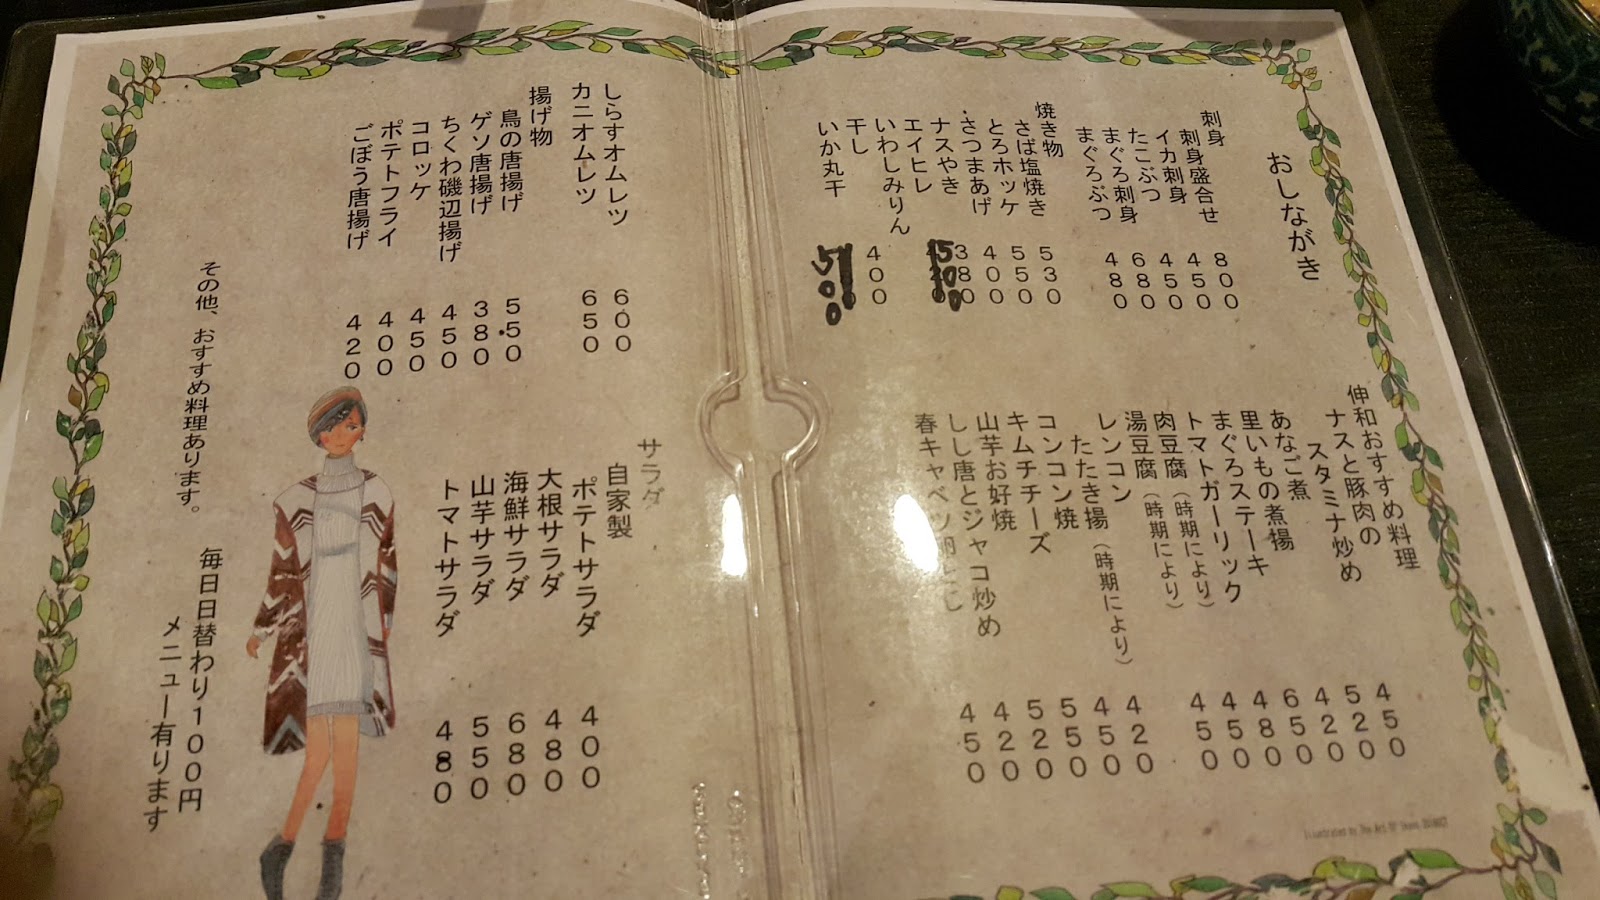 おしながき
刺身
刺身盛合せ 800
イカ刺身 450
たこぶつ 450
まぐろ刺身 680
まぐろぶつ 480
焼き物
さば塩焼き 530
とろホッケ 550
さつまあげ 400
ナスやき 380
エイヒレ 500
いわしみりん
干し 400
いか丸干 500
伸和おすすめ料理
ナスと豚肉の
スタミナ炒め 450
あなご煮 520
里いもの煮揚 420
まぐろステーキ 650
トマトガーリック 480
肉豆腐(時期により) 450
湯豆腐(時期により) 450
レンコン
たたき揚(時期により) 420
コンコン焼 450
キムチチーズ 550
山芋お好焼 520
しし唐とジャコ炒め 420
春キャベツ 450
しらすオムレツ 600
カニオムレツ 650
揚げ物
鳥の唐揚げ 550
ゲソ唐揚げ 380
ちくわ磯辺揚げ 450
コロッケ 450
ポテトフライ 400
ごぼう唐揚げ 420
サラダ
自家製
ポテトサラダ 400
大根サラダ 480
海鮮サラダ 680
山芋サラダ 550
トマトサラダ 480
その他、おすすめ料理あります。
毎日日替わり100円
メニュー有ります